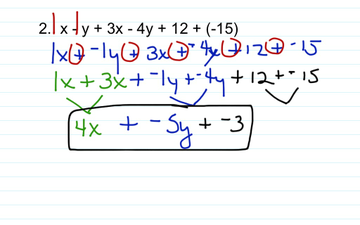 2. 1x - 1y + 3x - 4y + 12 + (-15)
1x + -1y + 3x + -4x + 12 + -15
1x + 3x + -1y + -4y + 12 + -15
4x + -5y + -3